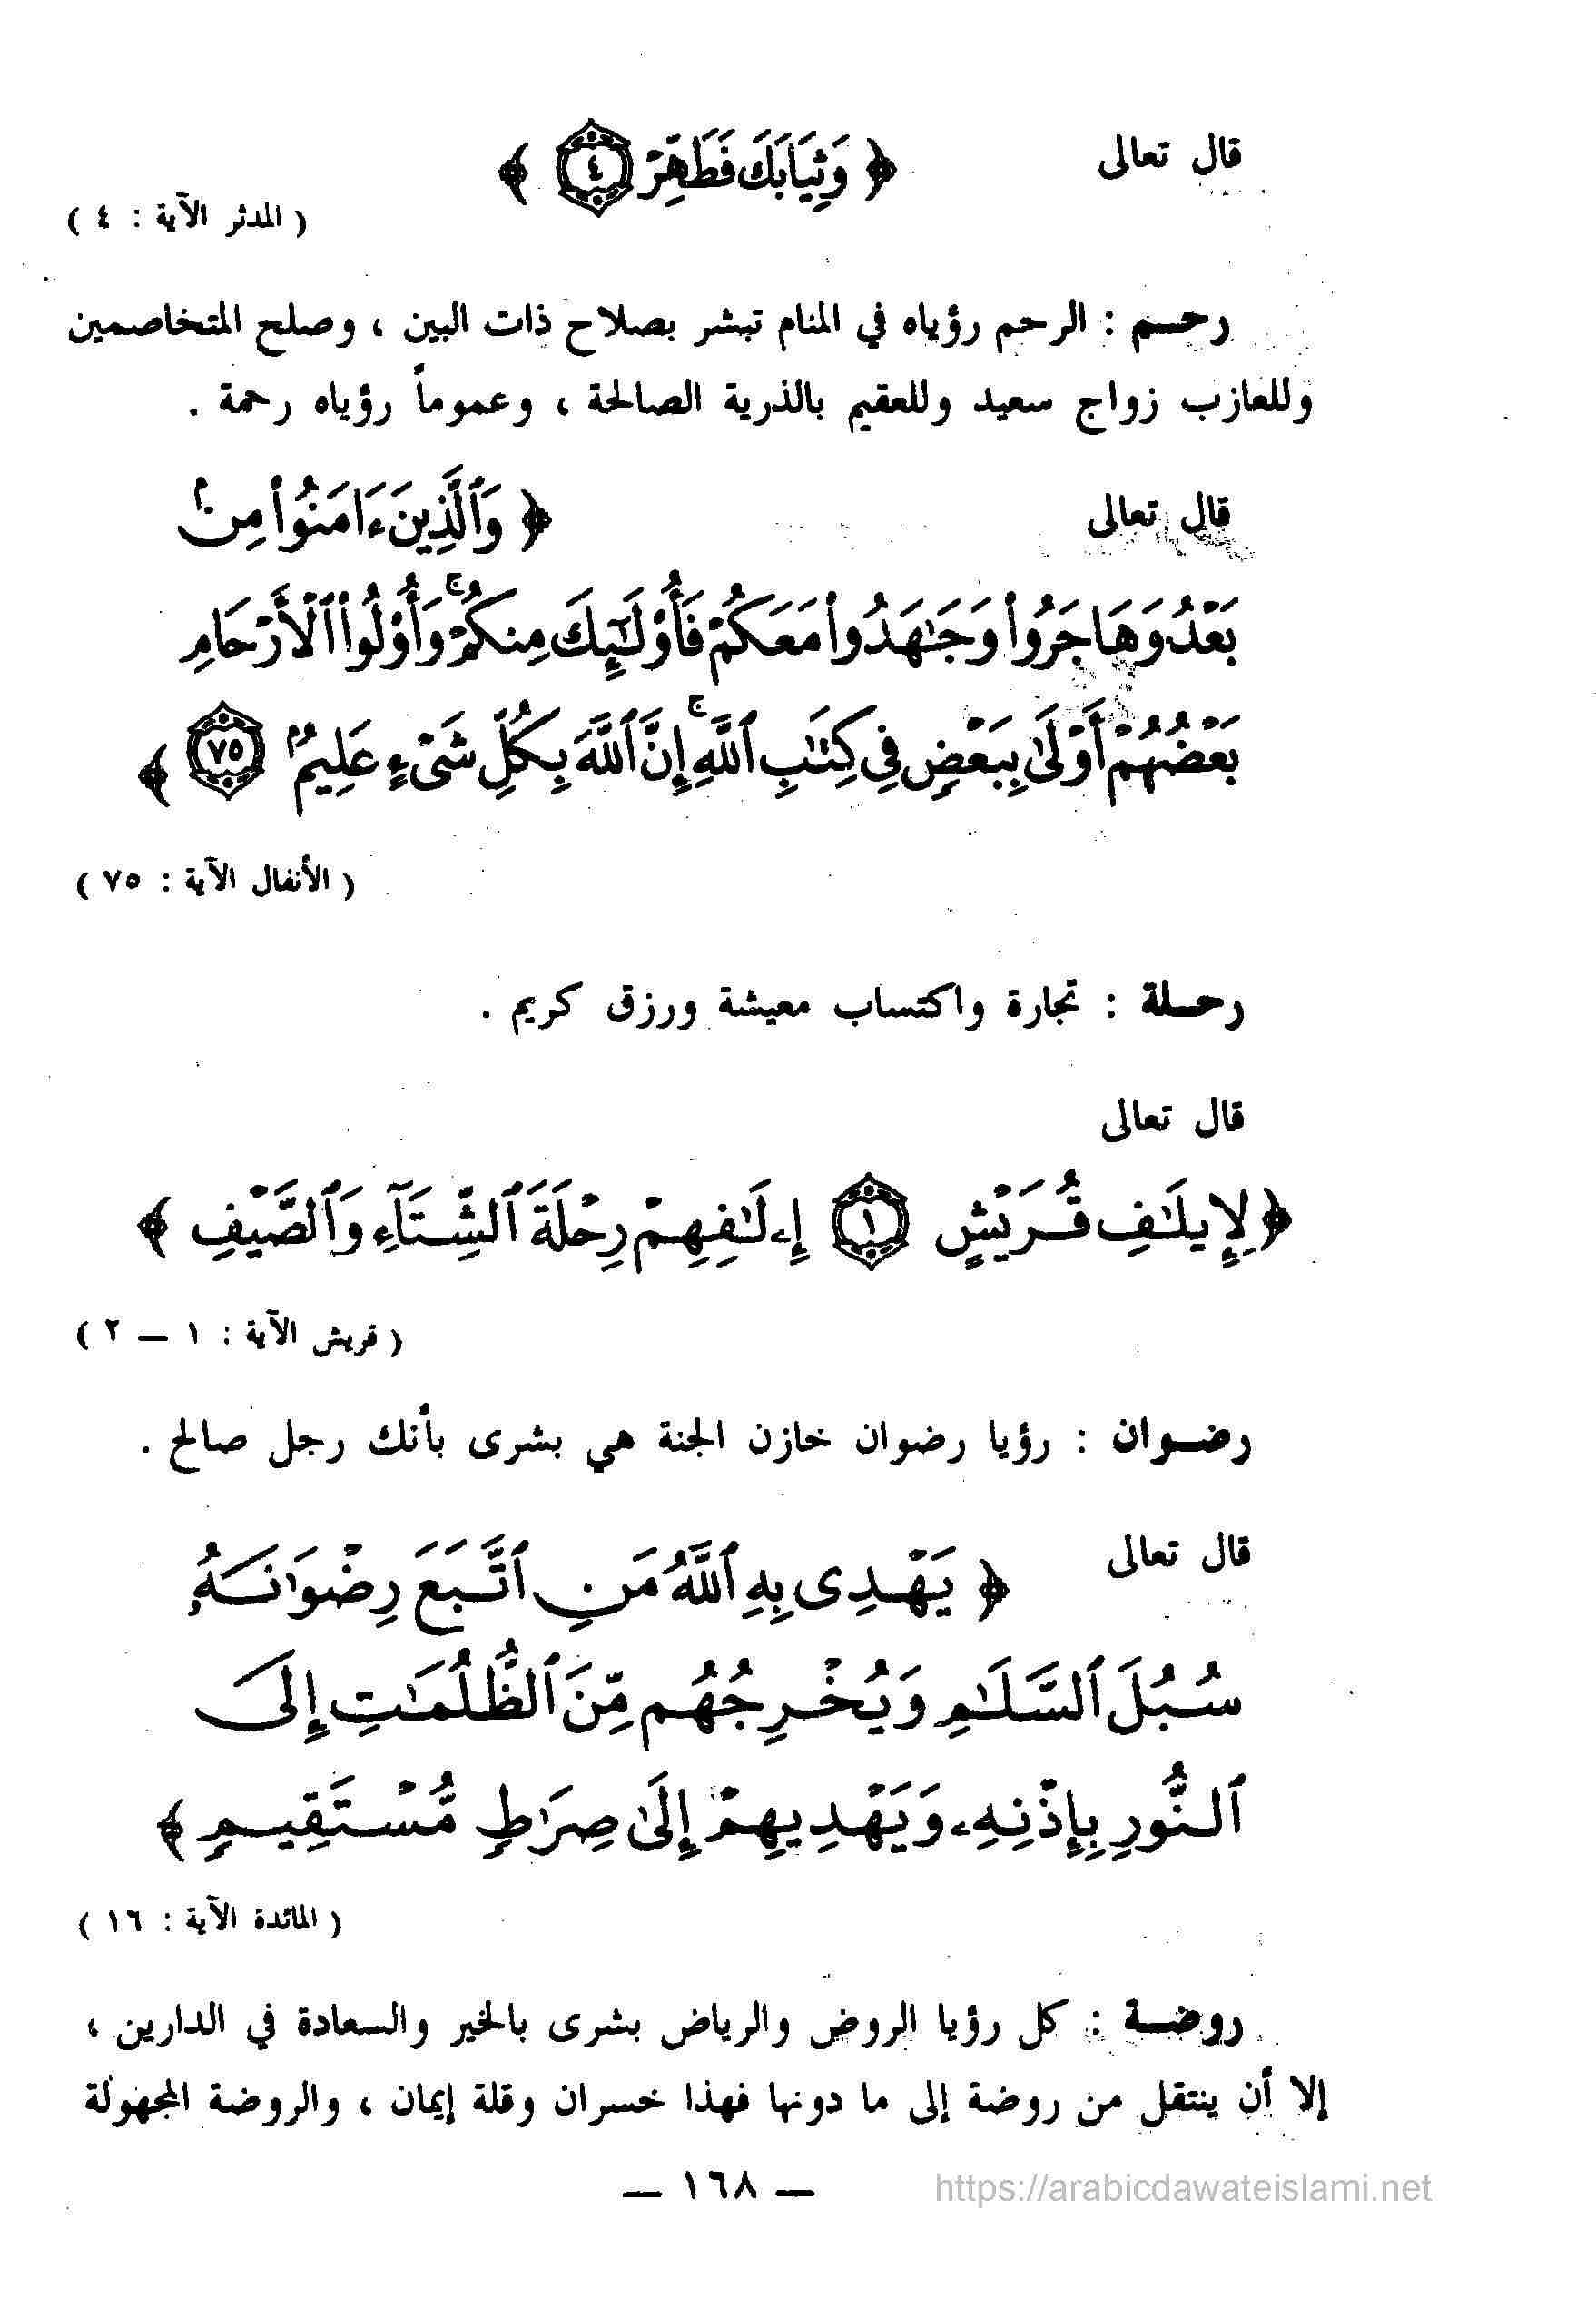 قال تعالى ﴿ وَثِيَابَكَ فَطَهِّرْ ٤ ﴾
( المدثر الآية : ٤ )
رحــم : الرحم رؤياه في المنام تبشر بصلاح ذات البين ، وصلح المتخاصمين
وللعازب زواج سعيد وللعقيم بالذرية الصالحة ، وعموماً رؤياه رحمة .
قال تعالى ﴿ وَٱلَّذِينَ ءَامَنُوا۟ مِنۢ
بَعْدُ وَهَاجَرُوا۟ وَجَـٰهَدُوا۟ مَعَكُمْ فَأُو۟لَـٰٓئِكَ مِنكُمْ ۚ وَأُو۟لُوا۟ ٱلْأَرْحَامِ
بَعْضُهُمْ أَوْلَىٰ بِبَعْضٍ فِى كِتَـٰبِ ٱللَّهِ ۚ إِنَّ ٱللَّهَ بِكُلِّ شَىْءٍ عَلِيمٌۢ ٧٥ ﴾
( الأنفال الآية : ٧٥ )
رحــلة : تجارة واكتساب معيشة ورزق كريم .
قال تعالى
﴿ لِإِيلَـٰفِ قُرَيْشٍ ١ إِۦلَـٰفِهِمْ رِحْلَةَ ٱلشِّتَآءِ وَٱلصَّيْفِ ﴾
( قريش الآية : ١ — ٢ )
رضــوان : رؤيا رضوان خازن الجنة هي بشرى بأنك رجل صالح .
قال تعالى ﴿ يَهْدِى بِهِ ٱللَّهُ مَنِ ٱتَّبَعَ رِضْوَٰنَهُۥ
سُبُلَ ٱلسَّلَـٰمِ وَيُخْرِجُهُم مِّنَ ٱلظُّلُمَـٰتِ إِلَى
ٱلنُّورِ بِإِذْنِهِۦ وَيَهْدِيهِمْ إِلَىٰ صِرَٰطٍ مُّسْتَقِيمٍ ﴾
( المائدة الآية : ١٦ )
روضــة : كل رؤيا الروض والرياض بشرى بالخير والسعادة في الدارين ،
إلا أن ينتقل من روضة إلى ما دونها فهذا خسران وقلة إيمان ، والروضة المجهولة
— ١٦٨ —
https://arabicdawateislami.net